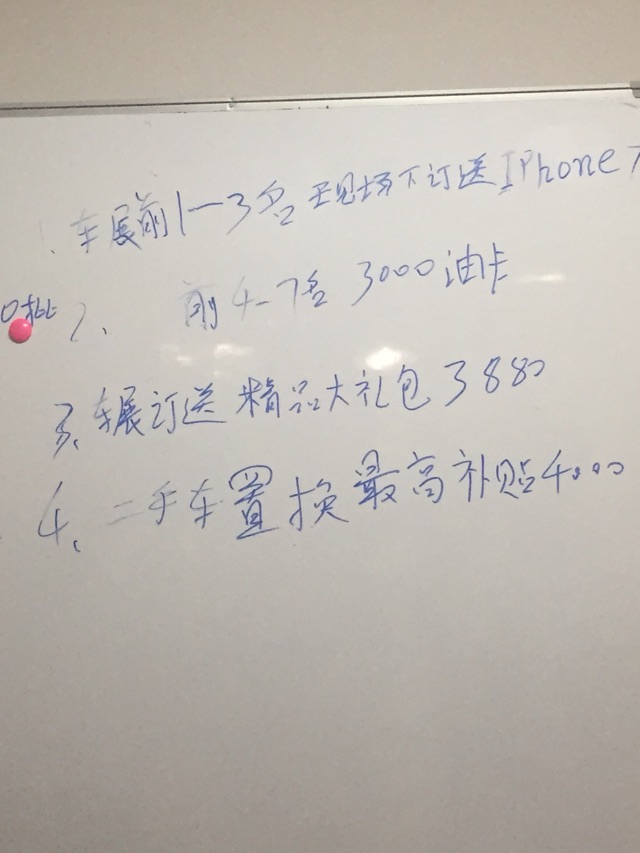 1. 车展前1-3名现场下订送IPhone7
2、 前4-7名 3000油卡
3、车展订送精品大礼包3880
4、二手车置换最高补贴4000